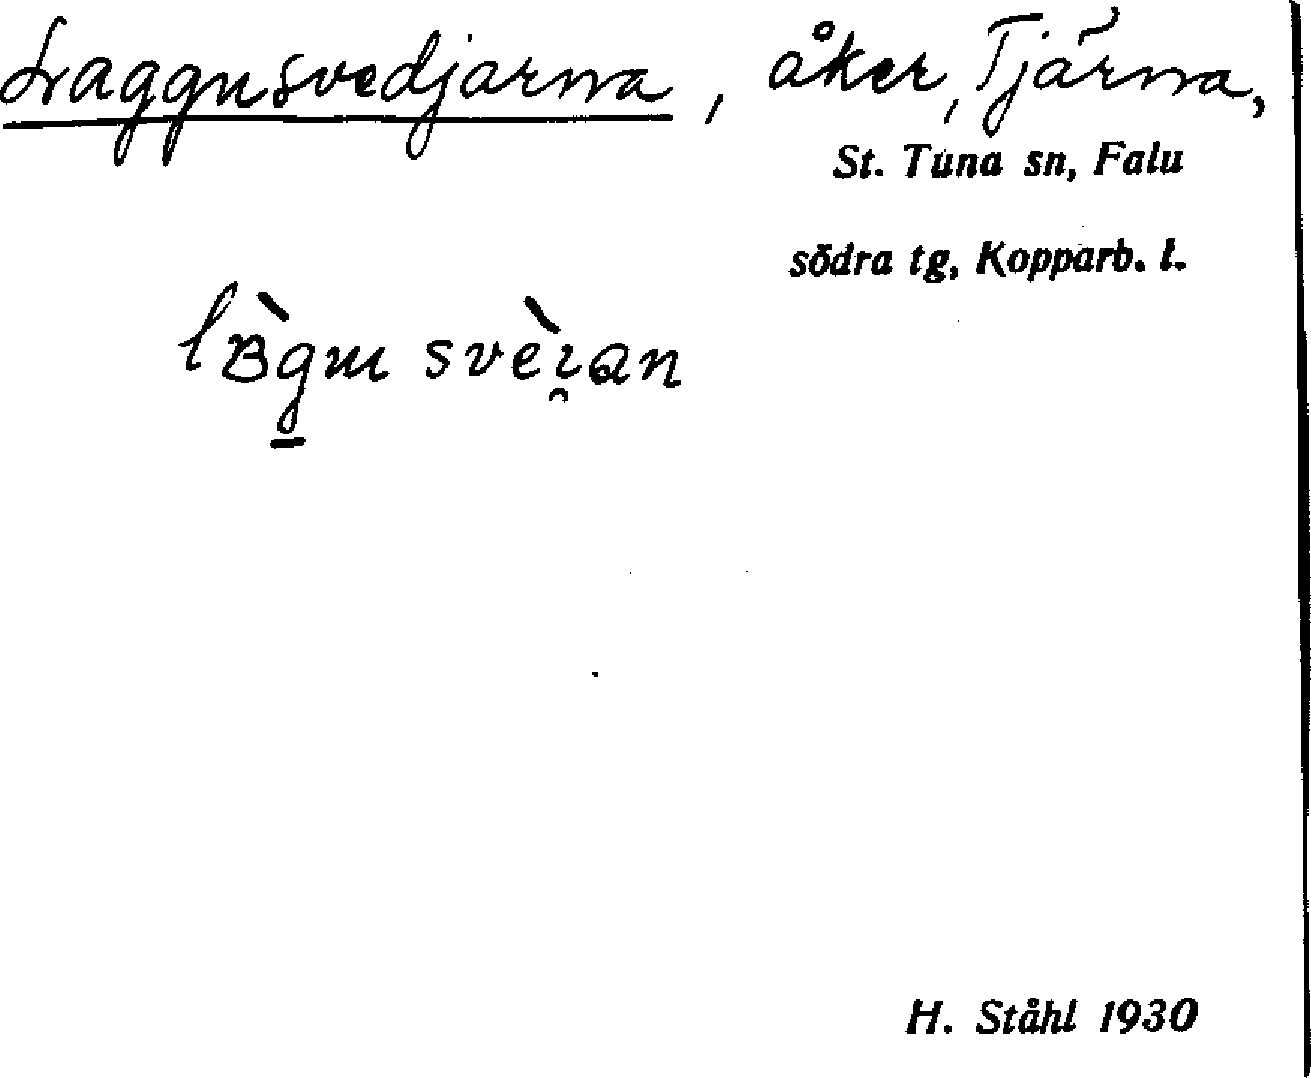 Laggusvedjarna, åker, Tjärna,
St. Tuna sn, Falu
södra tg, Kopparb. l.
H. Ståhl 1930